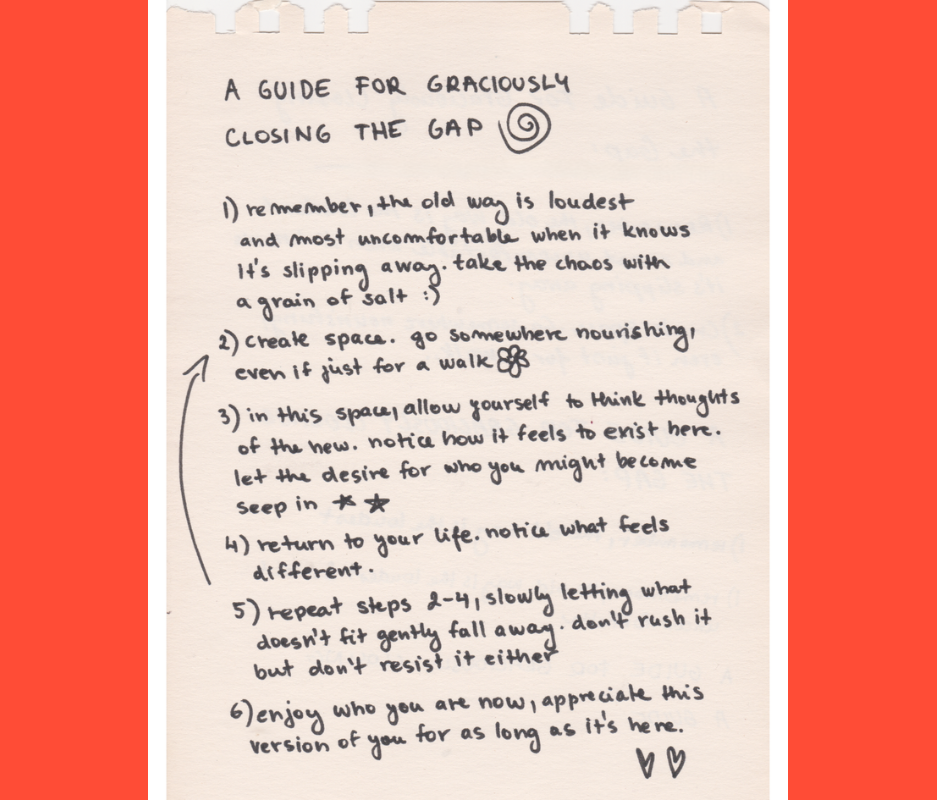 A GUIDE FOR GRACIOUSLY
CLOSING THE GAP
1) remember, the old way is loudest
and most uncomfortable when it knows
it's slipping away. take the chaos with
a grain of salt :)
2) create space. go somewhere nourishing,
even if just for a walk
3) in this space, allow yourself to think thoughts
of the new. notice how it feels to exist here.
let the desire for who you might become
seep in
4) return to your life. notice what feels
different.
5) repeat steps 2-4, slowly letting what
doesn't fit gently fall away. don't rush it
but don't resist it either
6) enjoy who you are now, appreciate this
version of you for as long as it's here.